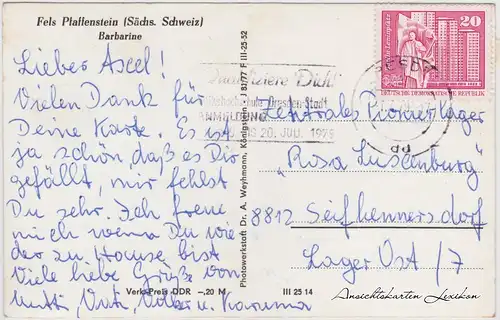 Fels Pfaffenstein (Sächs. Schweiz)
Barbarine
Lieber Axel!
Vielen Dank für
Deine Karte. Es ist
ja schön daß es Dir
gefällt, mir fehlst
Du sehr. Ich freue
mich wenn Du wie
der zu Hause bist
Viele liebe Grüße von
Mutti, Vati, Volker u.
Verk.-Preis DDR -,20 M
III 25 14
Photowerkstatt Dr. A. Weyhmann, Königstein J 81/77 F III-25-52
Qualifiziere Dich!
Volkshochschule Dresden-Stadt
ANMELDUNG
BIS 20. JULI 1979
20
DEUTSCHE DEMOKRATISCHE REPUBLIK
Zentrales Pionierlager
"Rosa Luxenburg"
8812 Seifhennersdorf
Lager Ost /7
Ansichtskarten Lexikon